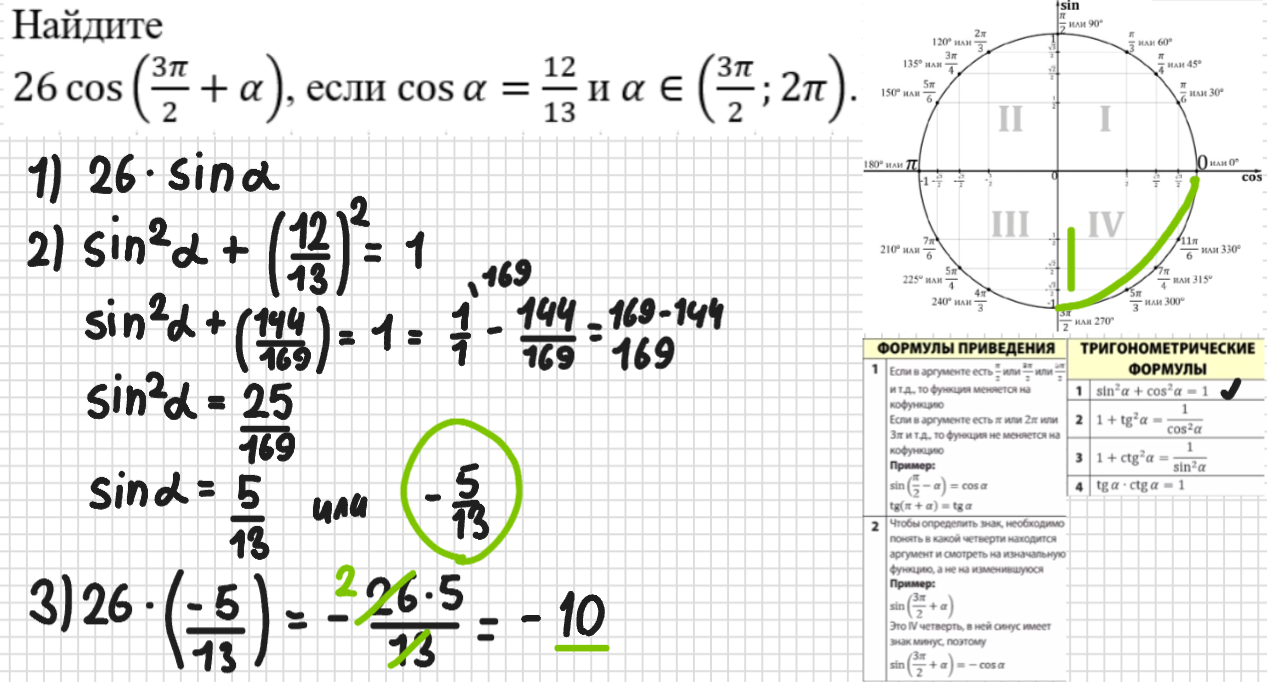 Найдите
26 cos (3π/2 + α), если cos α = 12/13 и α ∈ (3π/2 ; 2π).
1) 26 · sin α
2) sin²α + (12/13)² = 1
sin²α + (144/169) = 1 = 1/1 \169 - 144/169 = 169-144/169
sin²α = 25/169
sin α = 5/13 или - 5/13
3) 26 · (-5/13) = - 2 26·5/13 = - 10
sin
π/2 или 90°
120° или 2π/3
π/3 или 60°
135° или 3π/4
π/4 или 45°
150° или 5π/6
π/6 или 30°
II
I
180° или π
0 или 0°
-1
0
cos
III
IV
210° или 7π/6
11π/6 или 330°
225° или 5π/4
7π/4 или 315°
240° или 4π/3
5π/3 или 300°
-1
3π/2 или 270°
ФОРМУЛЫ ПРИВЕДЕНИЯ
1 Если в аргументе есть π/2 или 3π/2 или 5π/2
и т.д., то функция меняется на
кофункцию
Если в аргументе есть π или 2π или
3π и т.д., то функция не меняется на
кофункцию
Пример:
sin(π/2 − α) = cos α
tg(π + α) = tg α
2 Чтобы определить знак, необходимо
понять в какой четверти находится
аргумент и смотреть на изначальную
функцию, а не на изменившуюся
Пример:
sin(3π/2 + α)
Это IV четверть, в ней синус имеет
знак минус, поэтому
sin(3π/2 + α) = − cos α
ТРИГОНОМЕТРИЧЕСКИЕ
ФОРМУЛЫ
1 sin²α + cos²α = 1 ✓
2 1 + tg²α = 1/cos²α
3 1 + ctg²α = 1/sin²α
4 tg α · ctg α = 1